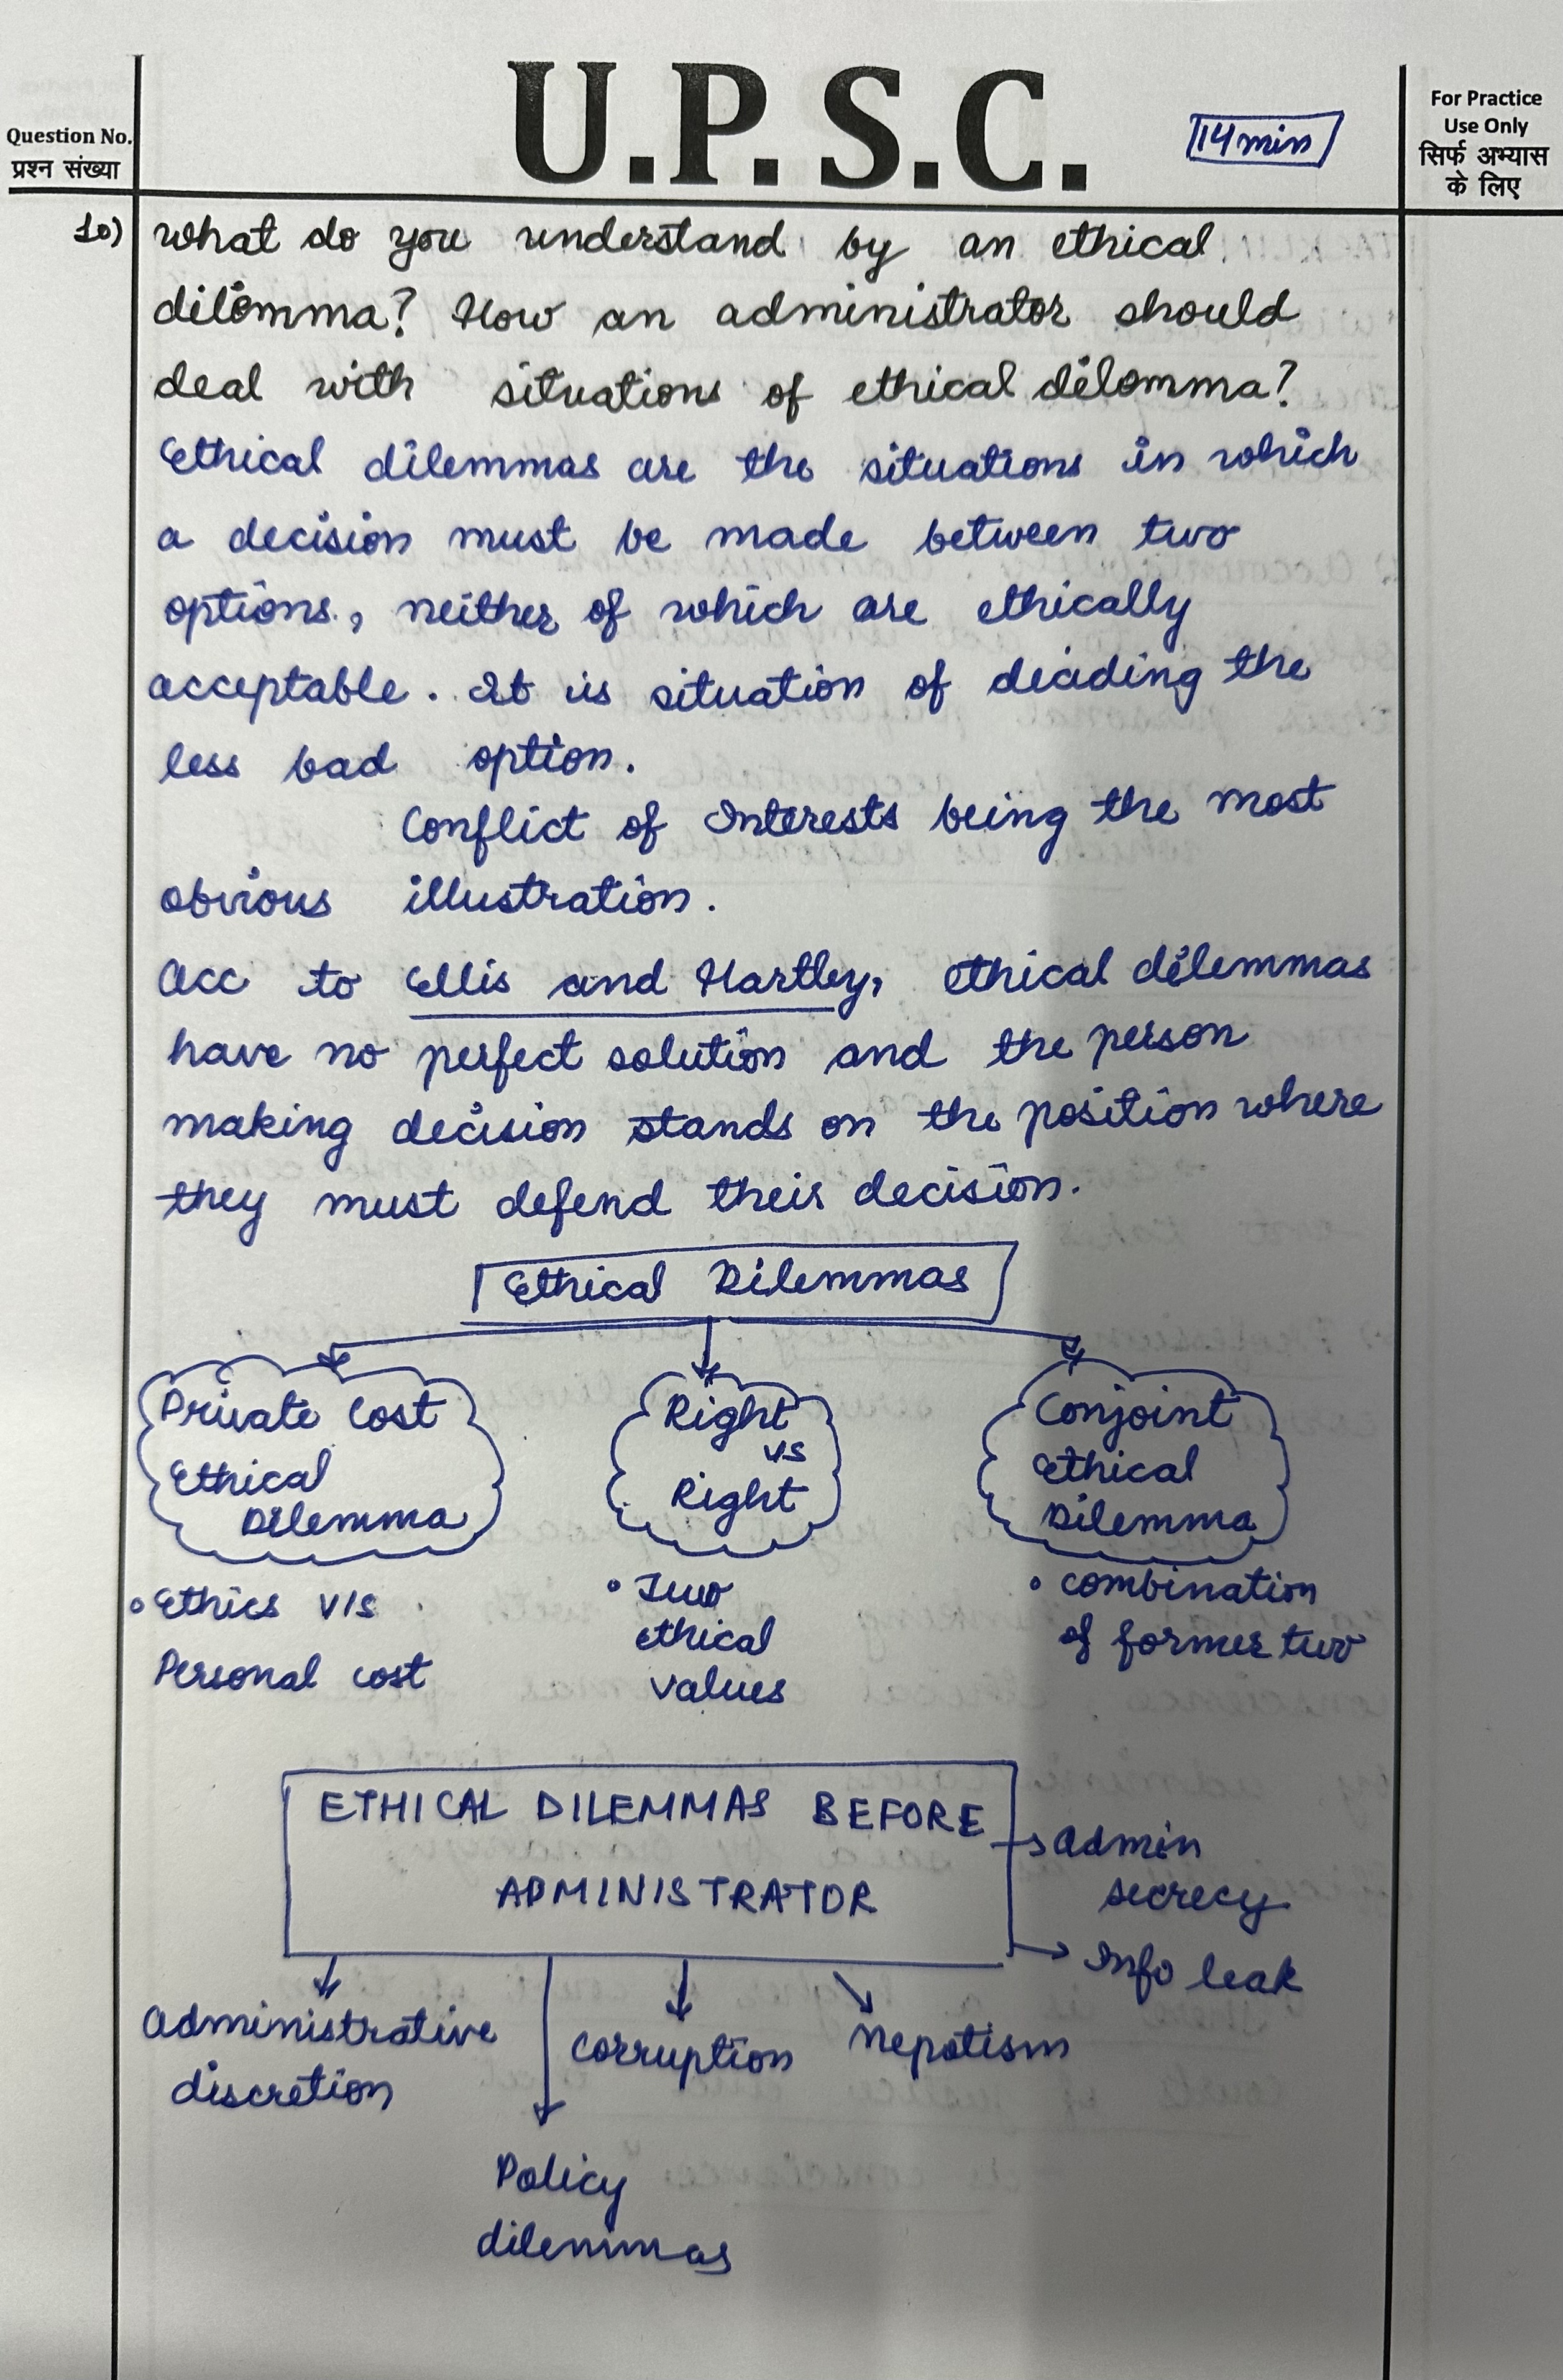 U.P.S.C.
14 min
Question No.
प्रश्न संख्या
For Practice
Use Only
सिर्फ अभ्यास
के लिए
10) What do you understand by an ethical
dilemma? How an administrator should
deal with situations of ethical dilomma?
Ethical dilemmas are the situations in which
a decision must be made between two
options, neither of which are ethically
acceptable. It is situation of deciding the
less bad option.
Conflict of Interests being the most
obvious illustration.
Acc to Ellis and Hartley, ethical dilemmas
have no perfect solution and the person
making decision stands on the position where
they must defend their decision.
Ethical Dilemmas
Private Cost
Ethical
Dilemma
• Ethics v/s
Personal cost
Right
vs
Right
• Two
ethical
values
Conjoint
Ethical
Dilemma
• combination
of former two
ETHICAL DILEMMAS BEFORE
ADMINISTRATOR
Admin
secrecy
Info leak
Administrative
discretion
Policy
dilemmas
corruption
Nepotism